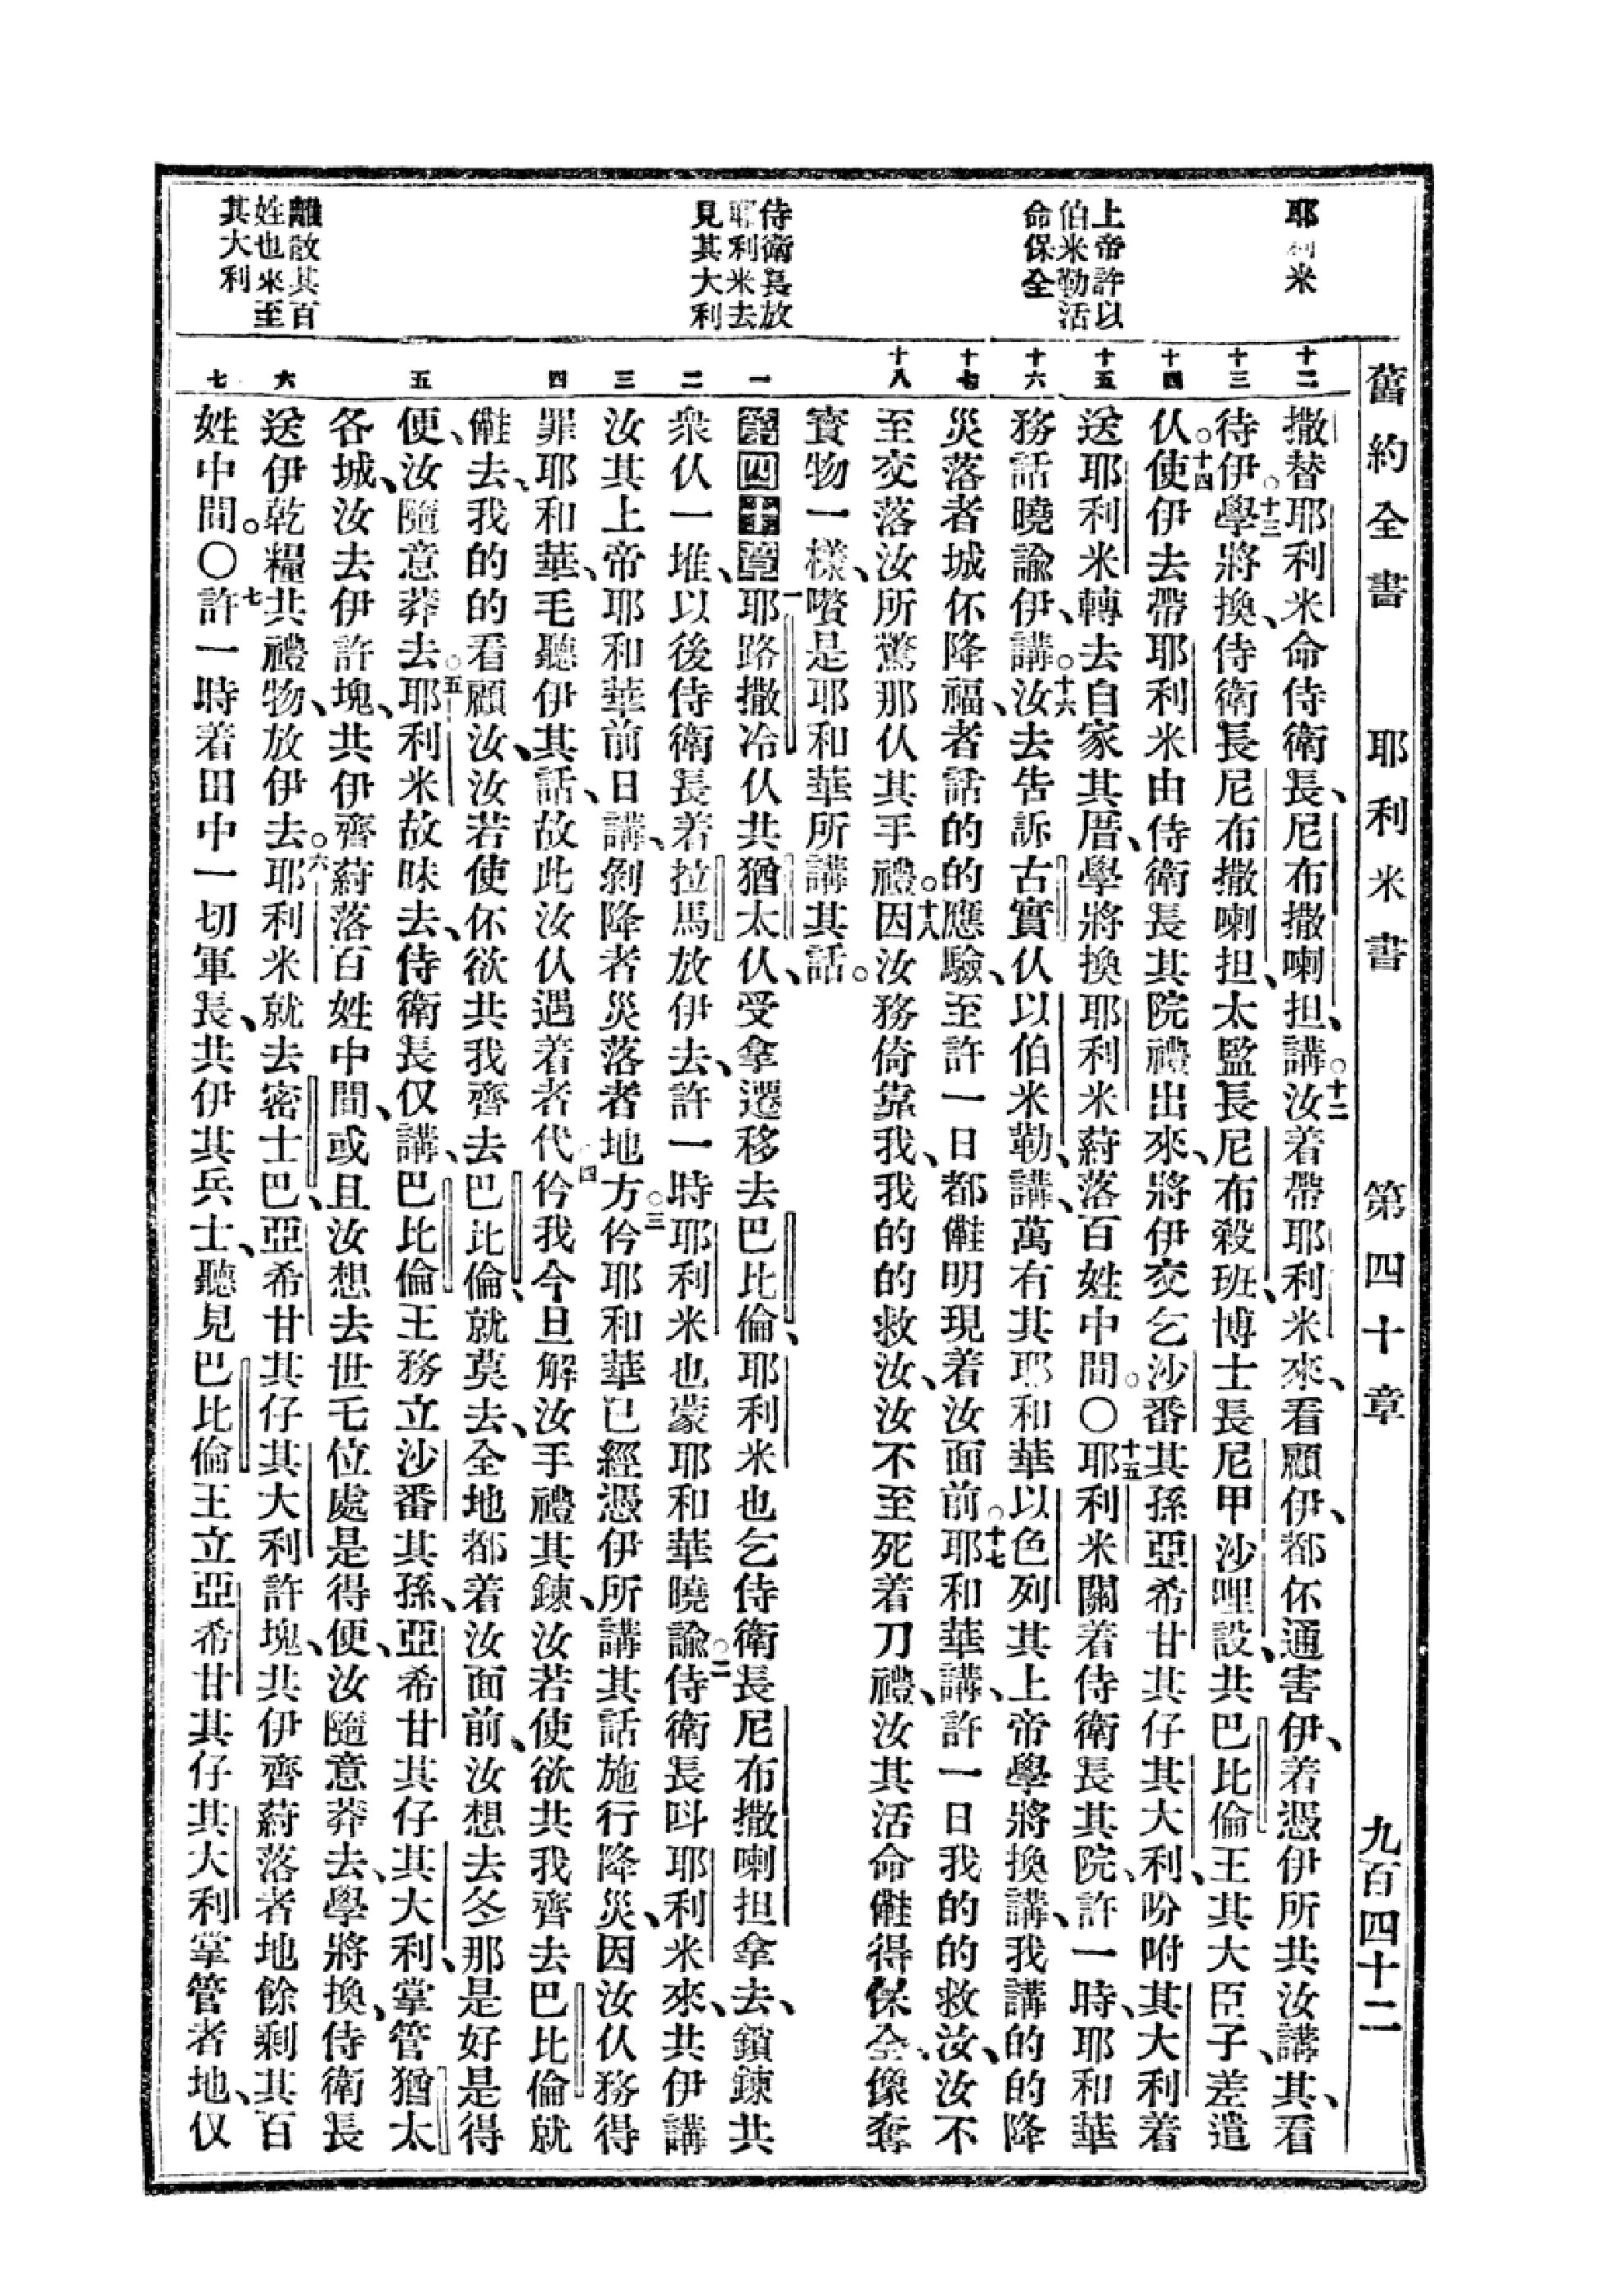 舊約全書 耶利米書 第四十章 九百四十二
耶利米
上帝許以
伯米勒活
命保全
侍衛長放
耶利米去
見其大利
離散其百
姓也來至
其大利
十二 十三 十四 十五 十六 十七 十八 一 二 三 四 五 六 七
撒替耶利米命侍衛長、尼布撒喇担、講。十二汝着帶耶利米來、看顧伊、都伓通害伊、着憑伊所共汝講其、看
待伊。十三學將換、侍衛長尼布撒喇担、太監長尼布殺班、博士長尼甲沙哩設、共巴比倫王其大臣子、差遣
仈。十四使伊去帶耶利米由侍衛長其院禮出來、將伊交乞沙番其孫亞希甘其仔其大利、吩咐其大利着
送耶利米轉去自家其厝、學將換耶利米蔚落百姓中間。〇十五耶利米關着侍衛長其院、許一時、耶和華
務話曉諭伊、講。十六汝去告訴古實仈以伯米勒、講、萬有其耶和華以色列其上帝學將換講、我講的的降
災落者城伓降福、者話的的應驗、至許一日都㒕明現着汝面前。十七耶和華講、許一日我的的救汝、汝不
至交落汝所驚那仈其手禮。十八因汝務倚靠我、我的的救汝、汝不至死着刀禮、汝其活命㒕得保全、像奪
寶物一樣、嘐是耶和華所講其話。
第四十章 一耶路撒冷仈共猶太仈、受拿遷移去巴比倫、耶利米也乞侍衛長尼布撒喇担拿去、鎖鍊共
衆仈一堆、以後侍衛長着拉馬放伊去、許一時耶利米也蒙耶和華曉諭。二侍衛長呌耶利米來、共伊講
汝其上帝耶和華前日講、剝降者災落者地方。三仱耶和華已經憑伊所講其話施行降災、因汝仈務得
罪耶和華、毛聽伊其話、故此汝仈遇着者代。四仱我今旦解汝手禮其鍊、汝若使欲共我齊去巴比倫就
㒕去、我的的看顧汝、汝若使伓欲共我齊去巴比倫、就莫去、全地都着汝面前、汝想去冬那是好是得
便、汝隨意莽去。五耶利米故昧去、侍衛長仅講、巴比倫王務立沙番其孫、亞希甘其仔其大利、掌管猶太
各城、汝去伊許塊、共伊齊蔚落百姓中間、或且汝想去世乇位處是得便、汝隨意莽去、學將換、侍衛長
送伊乾糧共禮物、放伊去。六耶利米就去密士巴、亞希甘其仔其大利許塊、共伊齊蔚落者地餘剩其百
姓中間。〇七許一時着田中一切軍長、共伊其兵士、聽見巴比倫王立亞希甘其仔其大利掌管者地、仅